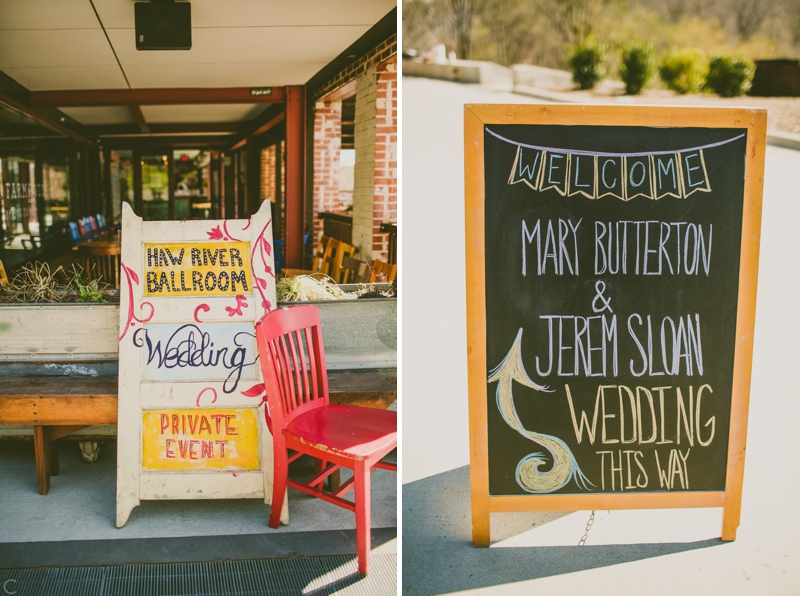 HAW RIVER
BALLROOM
Wedding
PRIVATE
EVENT
WELCOME
MARY BUTTERTON
&
JEREM SLOAN
WEDDING
THIS WAY